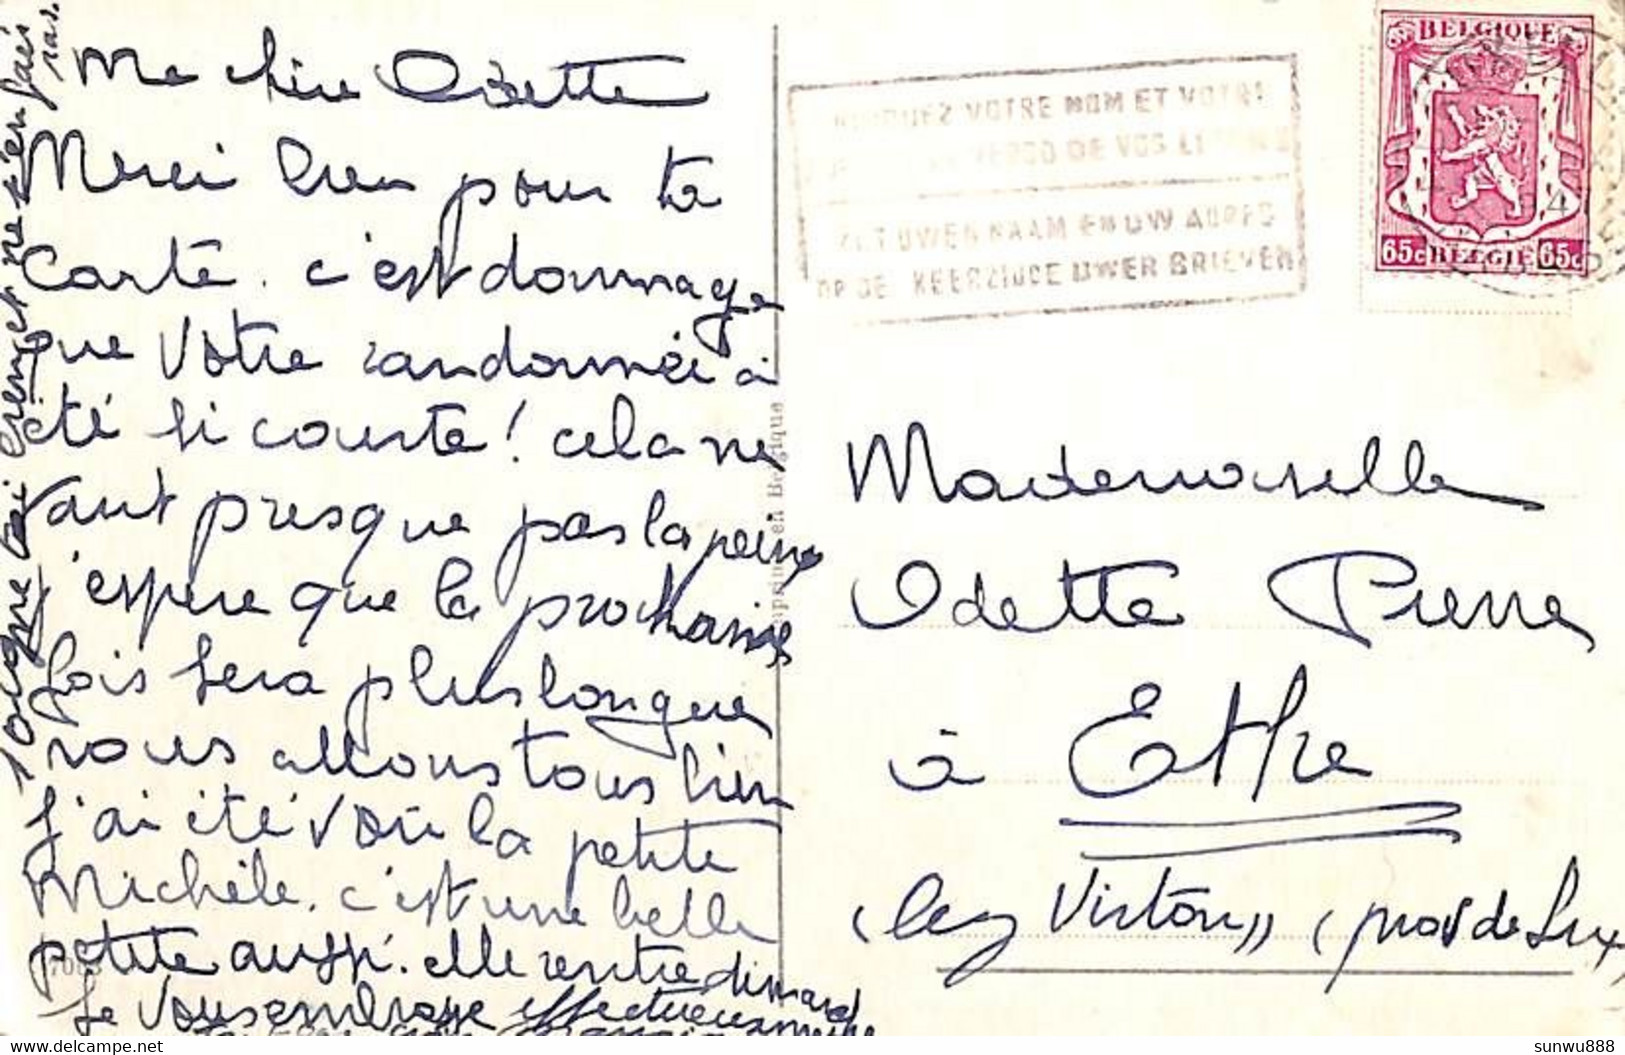 Ma chère Odette
Merci bien pour ta
Carte. c'est dommage
que Votre randonnée a
été si courte! cela ne
vaut presque pas la peine
j'espère que la prochaine
fois sera plus longue
nous allons tous bien
J'ai été voir la petite
Michèle. c'est une belle
petite aussi. elle rentre dimanche
Je Vous embrasse affectueusement
Soigne toi bien et ne t'en fais
pas.
7003
Imprimé en Belgique
INDIQUEZ VOTRE NOM ET VOTRE
VERSO DE VOS LETTRES
ZET UWEN NAAM EN UW ADRES
OP DE KEERZIJDE UWER BRIEVEN
BELGIQUE
65c BELGIE 65c
Mademoiselle
Odette Pierre
à Ethe
(lez Virton) (prov de Lux
sunwu888